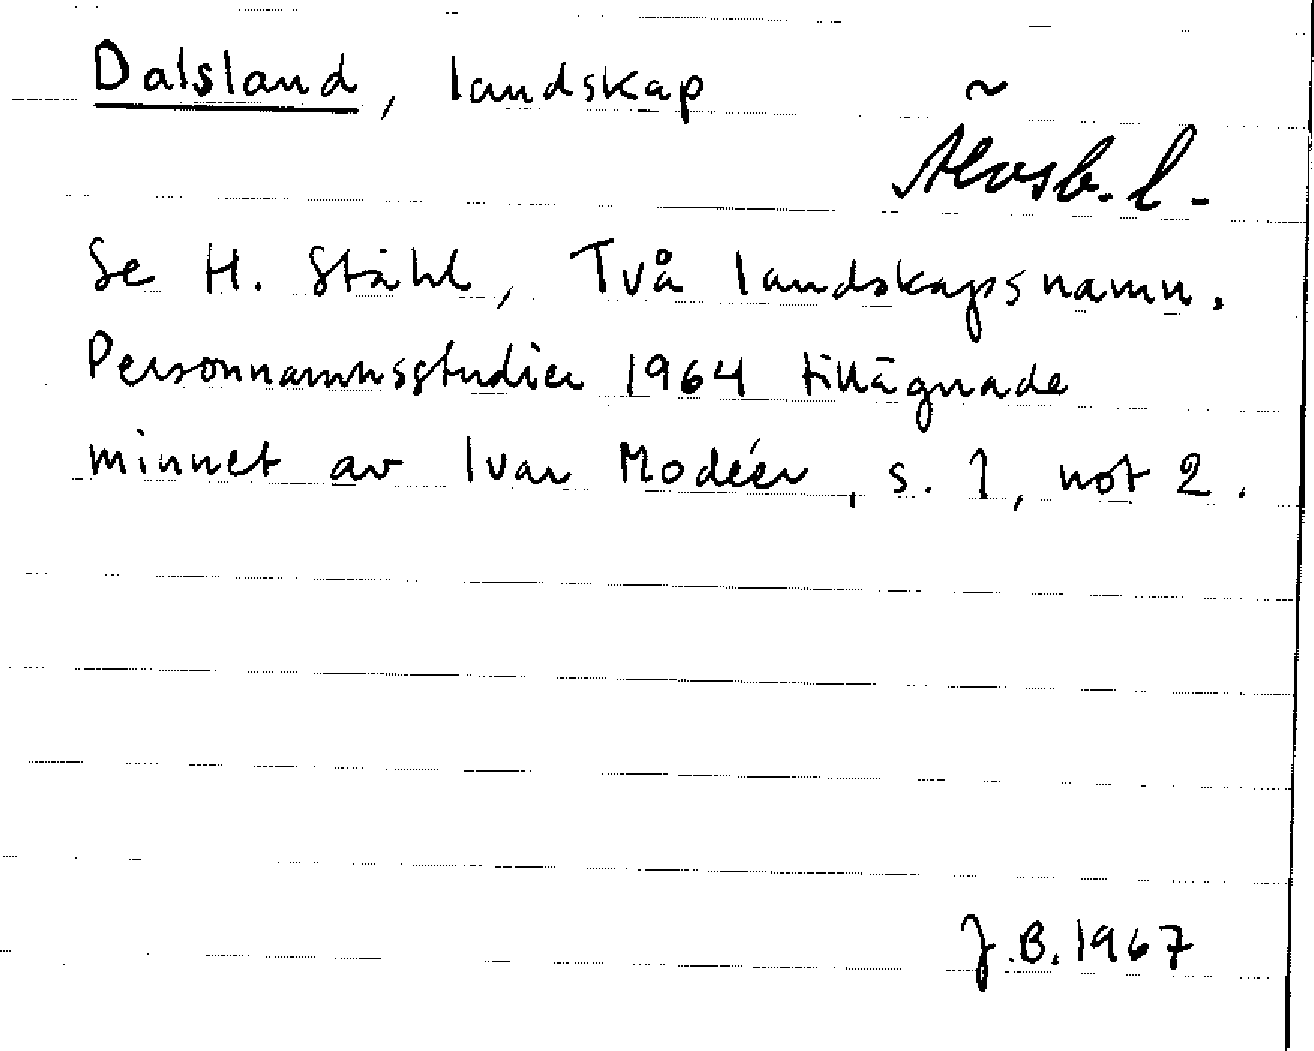 Dalsland, landskap
Älvsb. l.
Se H. Ståhl, Två landskapsnamn.
Personnamnsstudier 1964 tillägnade
minnet av Ivar Modéer, s. 1, not 2.
J.B. 1967